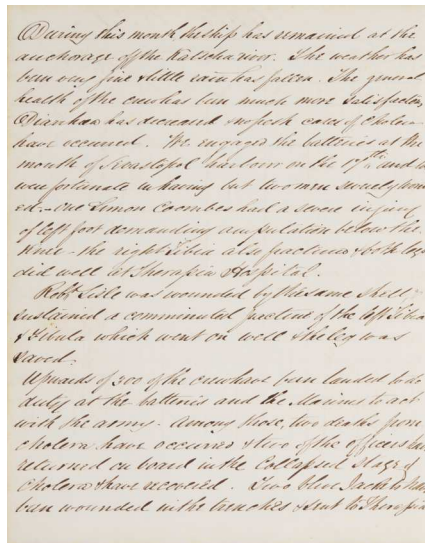 During this month the ship has remained at the
anchorage off the Katscha river. The weather has
been very fine & little rain has fallen. The general
health of the crew has been much more satisfactory
Diarrhœa has decreased no fresh cases of cholera
have occurred. We engaged the batteries at the
mouth of Sevastopol harbour on the 17th and
were fortunate in having but two men severely
ed. - One Simon Coombes had a severe injury
of left foot demanding amputation below the
knee - the right Tibia also fractured & both legs
did well at Therapia Hospital.
Robt Lisle was wounded by the same shell,
sustained a comminuted fracture of the left Tibia
& Fibula which went on well & the leg was
saved.
Upwards of 300 of the crew have been landed to do
duty at the batteries and the Marines to act
with the army. Among those, two deaths from
cholera have occurred & two of the officers have
returned on board in the collapsed stage of
cholera & have recovered. Two blue Jackets have
been wounded in the trenches & sent to Therapia